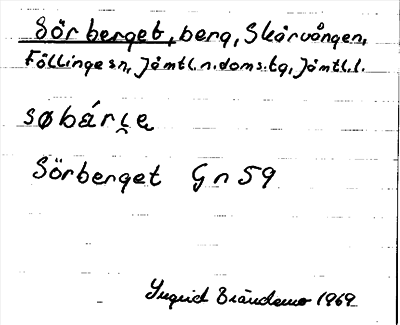 Sörberget, berg, Skärvången,
Föllinge sn, Jämtl. n. doms. tg, Jämtl. l.
søbárı̯e̯
Sörberget Gn 59
Ingrid Brändemo 1969